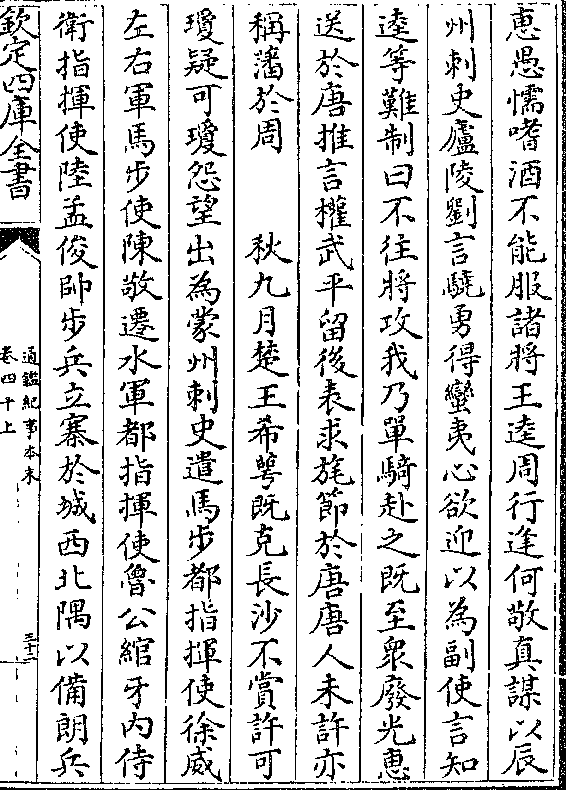 恵愚懦嗜酒不能服諸將王逵周行逢何敬真謀以辰
州刺史廬陵劉言驍勇得蠻夷心欲迎以為副使言知
逵等難制曰不往將攻我乃單騎赴之既至衆廢光恵
送於唐推言權武平留後表求旄節於唐唐人未許亦
稱藩於周　秋九月楚王希萼既克長沙不賞許可
瓊疑可瓊怨望出為蒙州刺史遣馬步都指揮使徐威
左右軍馬步使陳敬遷水軍都指揮使魯公綰牙内侍
衛指揮使陸孟俊帥步兵立寨於城西北隅以備朗兵
欽定四庫全書
通鑑紀事本末
卷四十上
三十二